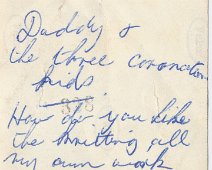 Daddy &
the three coronation
kids.
How do you like
the knitting all
my own work